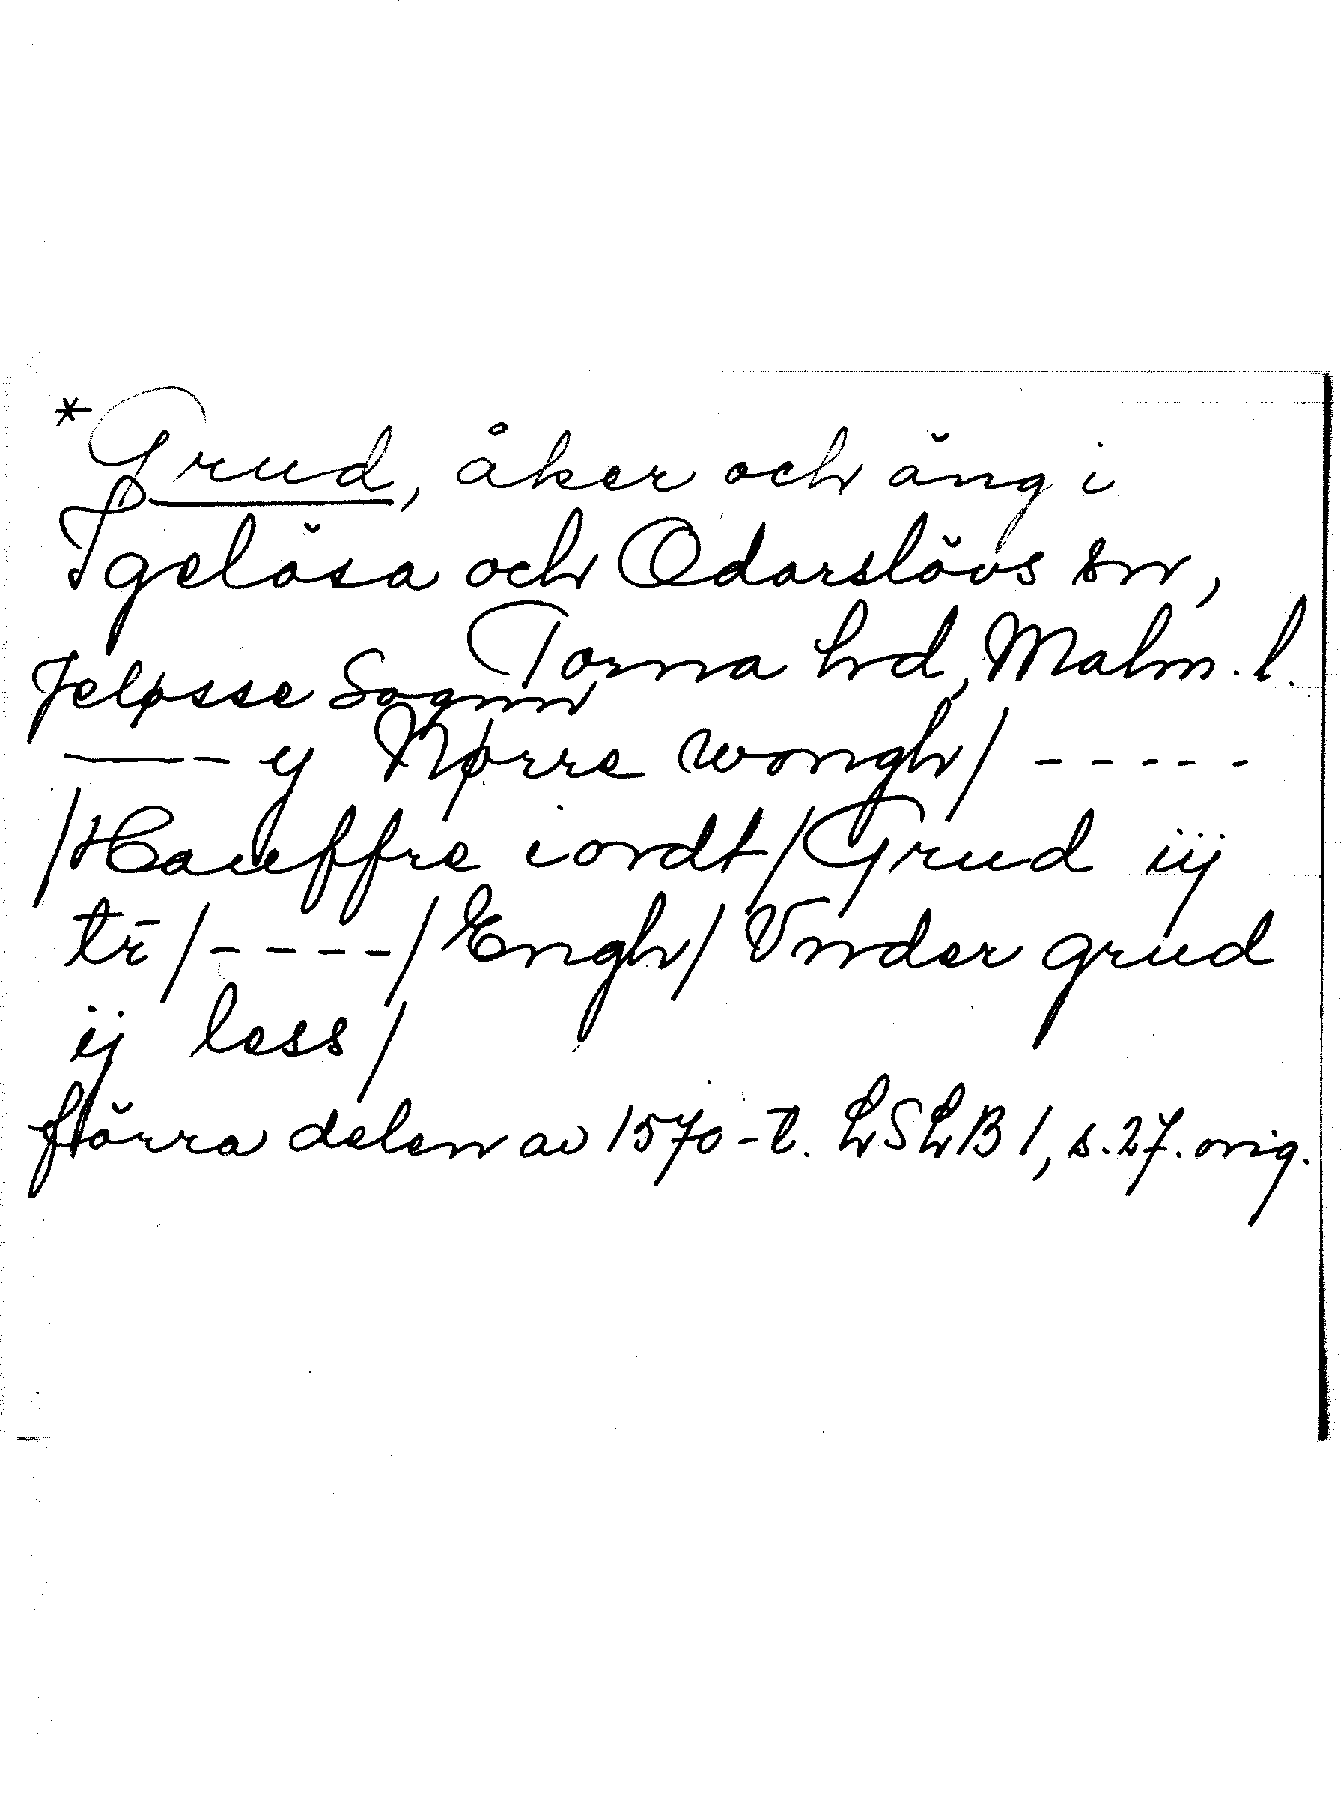 *Grud, åker och äng i
Igelösa och Odarslövs snr,
Torna hd, Malm. l.
Jeløsse Sognn
—— – y Nørre wongh/ - - - - -
/Haueffre iordt/Grud iij
tr̄/- - - - -/Engh/Vnder grud
ij less/
förra delen av 1570-t. LSLB 1, s. 27. orig.